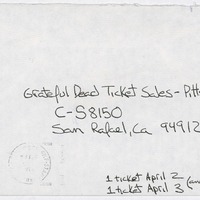 Grateful Dead Ticket Sales - Pitt
C-S8150
San Rafael, Ca 94912
1 ticket April 2
1 ticket April 3 (an